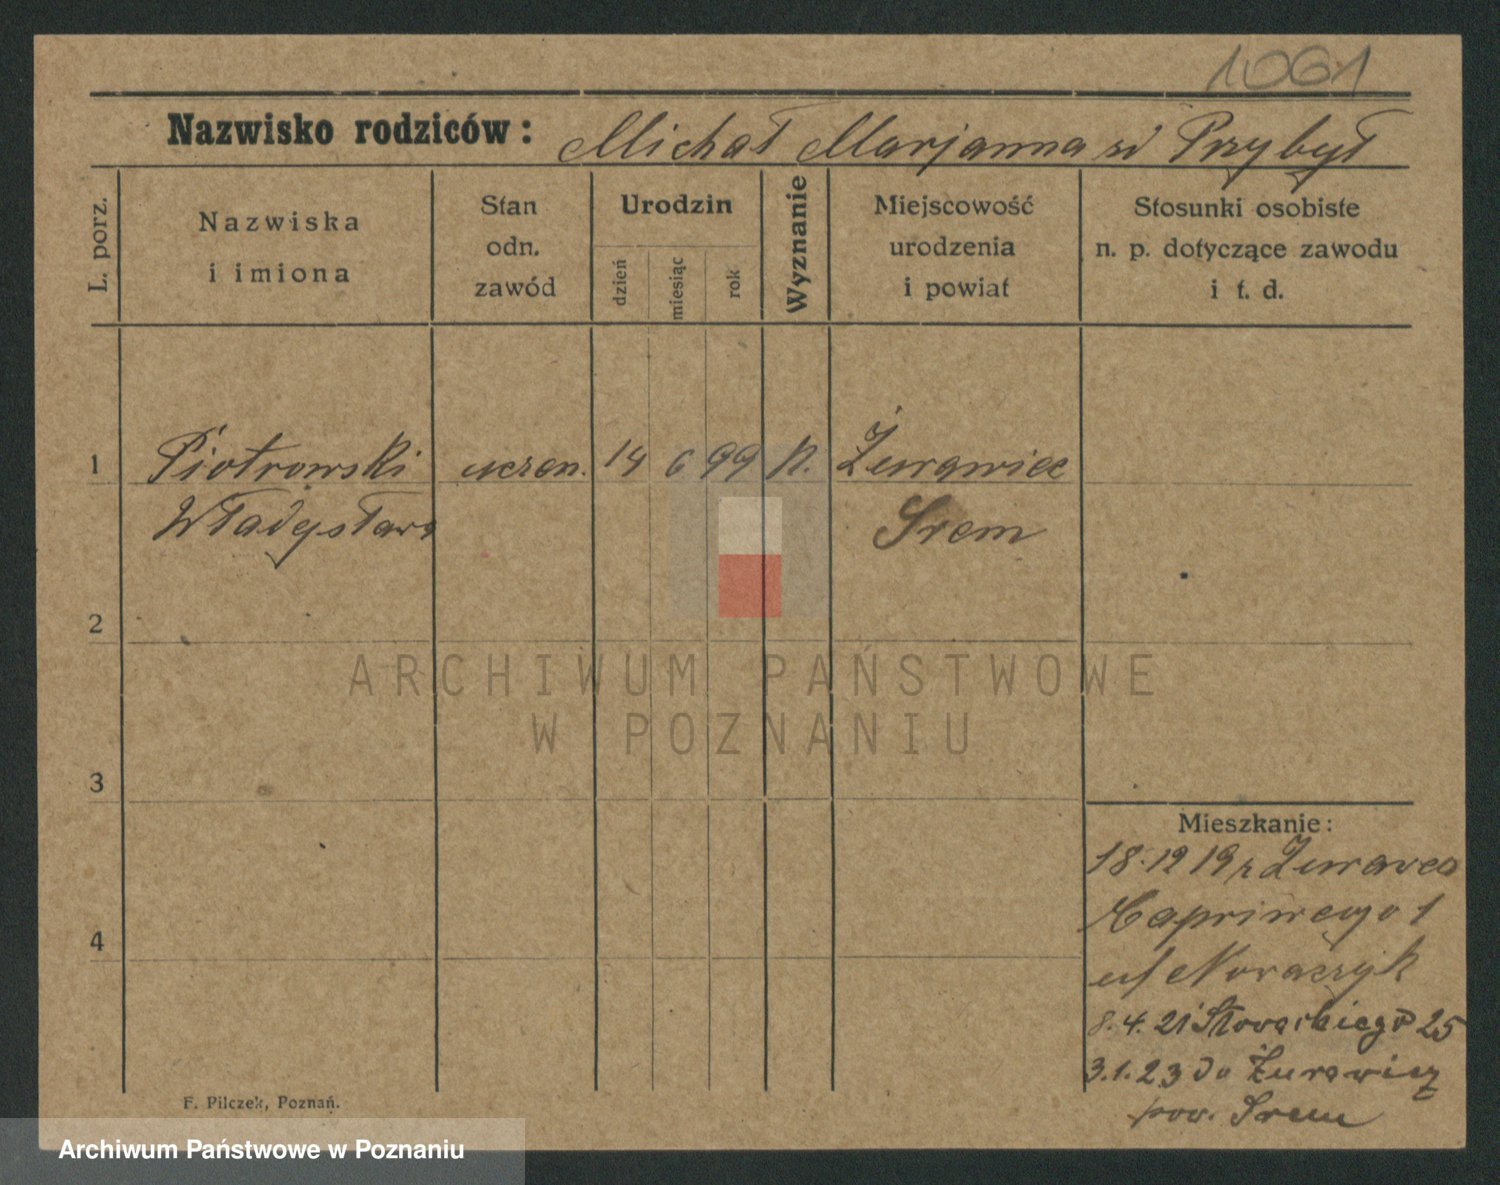 1061
Nazwisko rodziców: Michał Marjanna zd Przybył
L. porz.
Nazwiska
i imiona
Stan
odn.
zawód
Urodzin
dzień
miesiąc
rok
Wyznanie
Miejscowość
urodzenia
i powiat
Stosunki osobiste
n. p. dotyczące zawodu
i t. d.
1 Piotrowski uczen. 14 6 99 k. Żurawiec
Władysław Śrem
2
ARCHIWUM PAŃSTWOWE
W POZNANIU
3
Mieszkanie:
18.12 19 z Żurawca
Capriwego 1
u/ Nowaczyk
4
8.4.21 Słowackiego 25
3.1.23 do Żurawicz
pow. Śrem
F. Pilczek, Poznań.
Archiwum Państwowe w Poznaniu